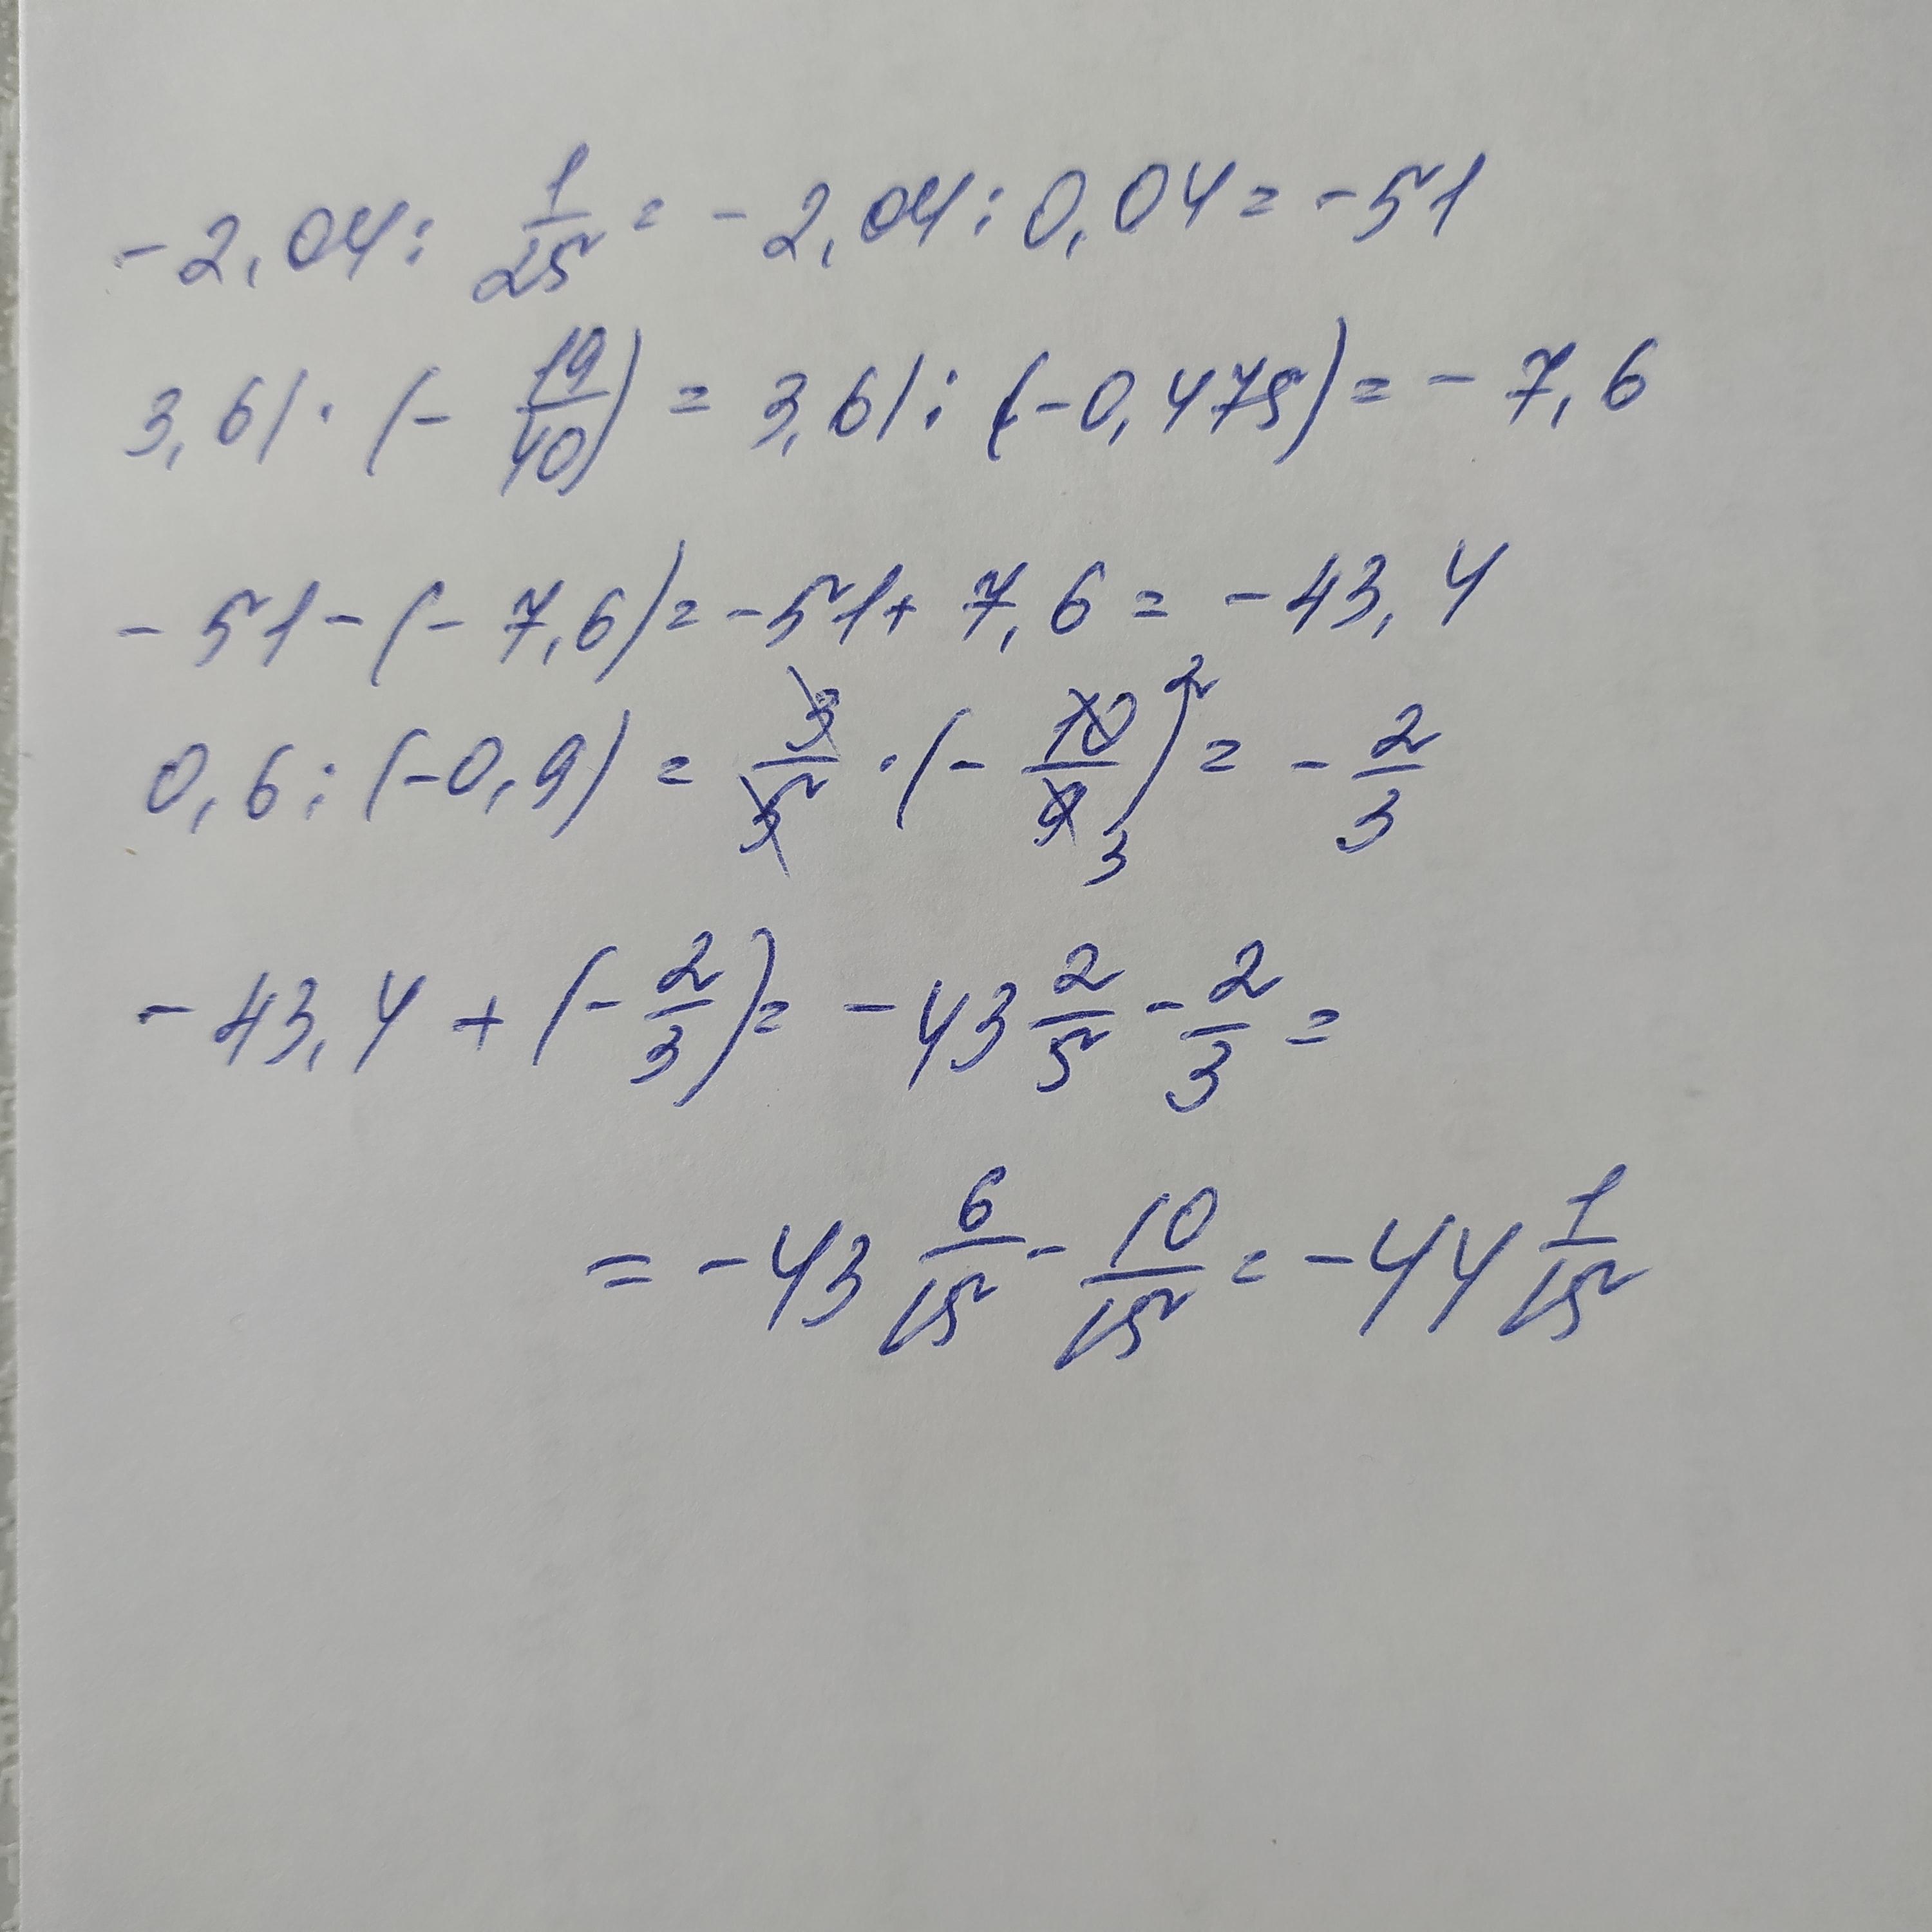 -2,04 : 1/25 = -2,04 : 0,04 = -51
3,61 · (- 19/40) = 3,61 : (-0,475) = - 7,6
- 51 - (- 7,6) = -51 + 7,6 = - 43,4
0,6 : (-0,9) = 3/5 · (- 10/9) 2 3 = - 2/3
- 43,4 + (- 2/3) = - 43 2/5 - 2/3 =
= - 43 6/15 - 10/15 = - 44 1/15